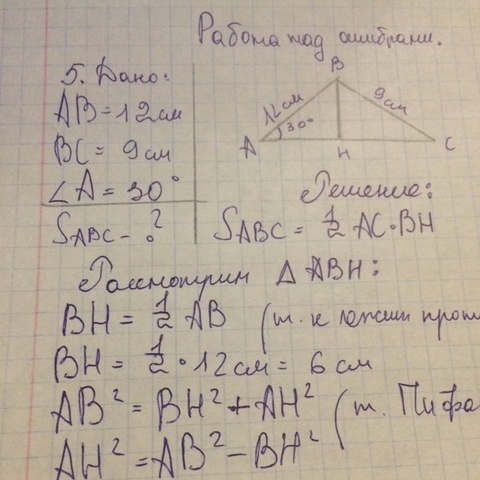 Работа над ошибками.
5. Дано:
AB=12см
BC= 9см
∠A = 30°
SABC - ?
B
12см
9см
30°
A
H
C
Решение:
SABC = 1/2 AC·BH
Рассмотрим △ ABH:
BH = 1/2 AB (т. к лежит прот
BH = 1/2 · 12см = 6 см
AB² = BH² + AH² (т. Пифа
AH² = AB² - BH²